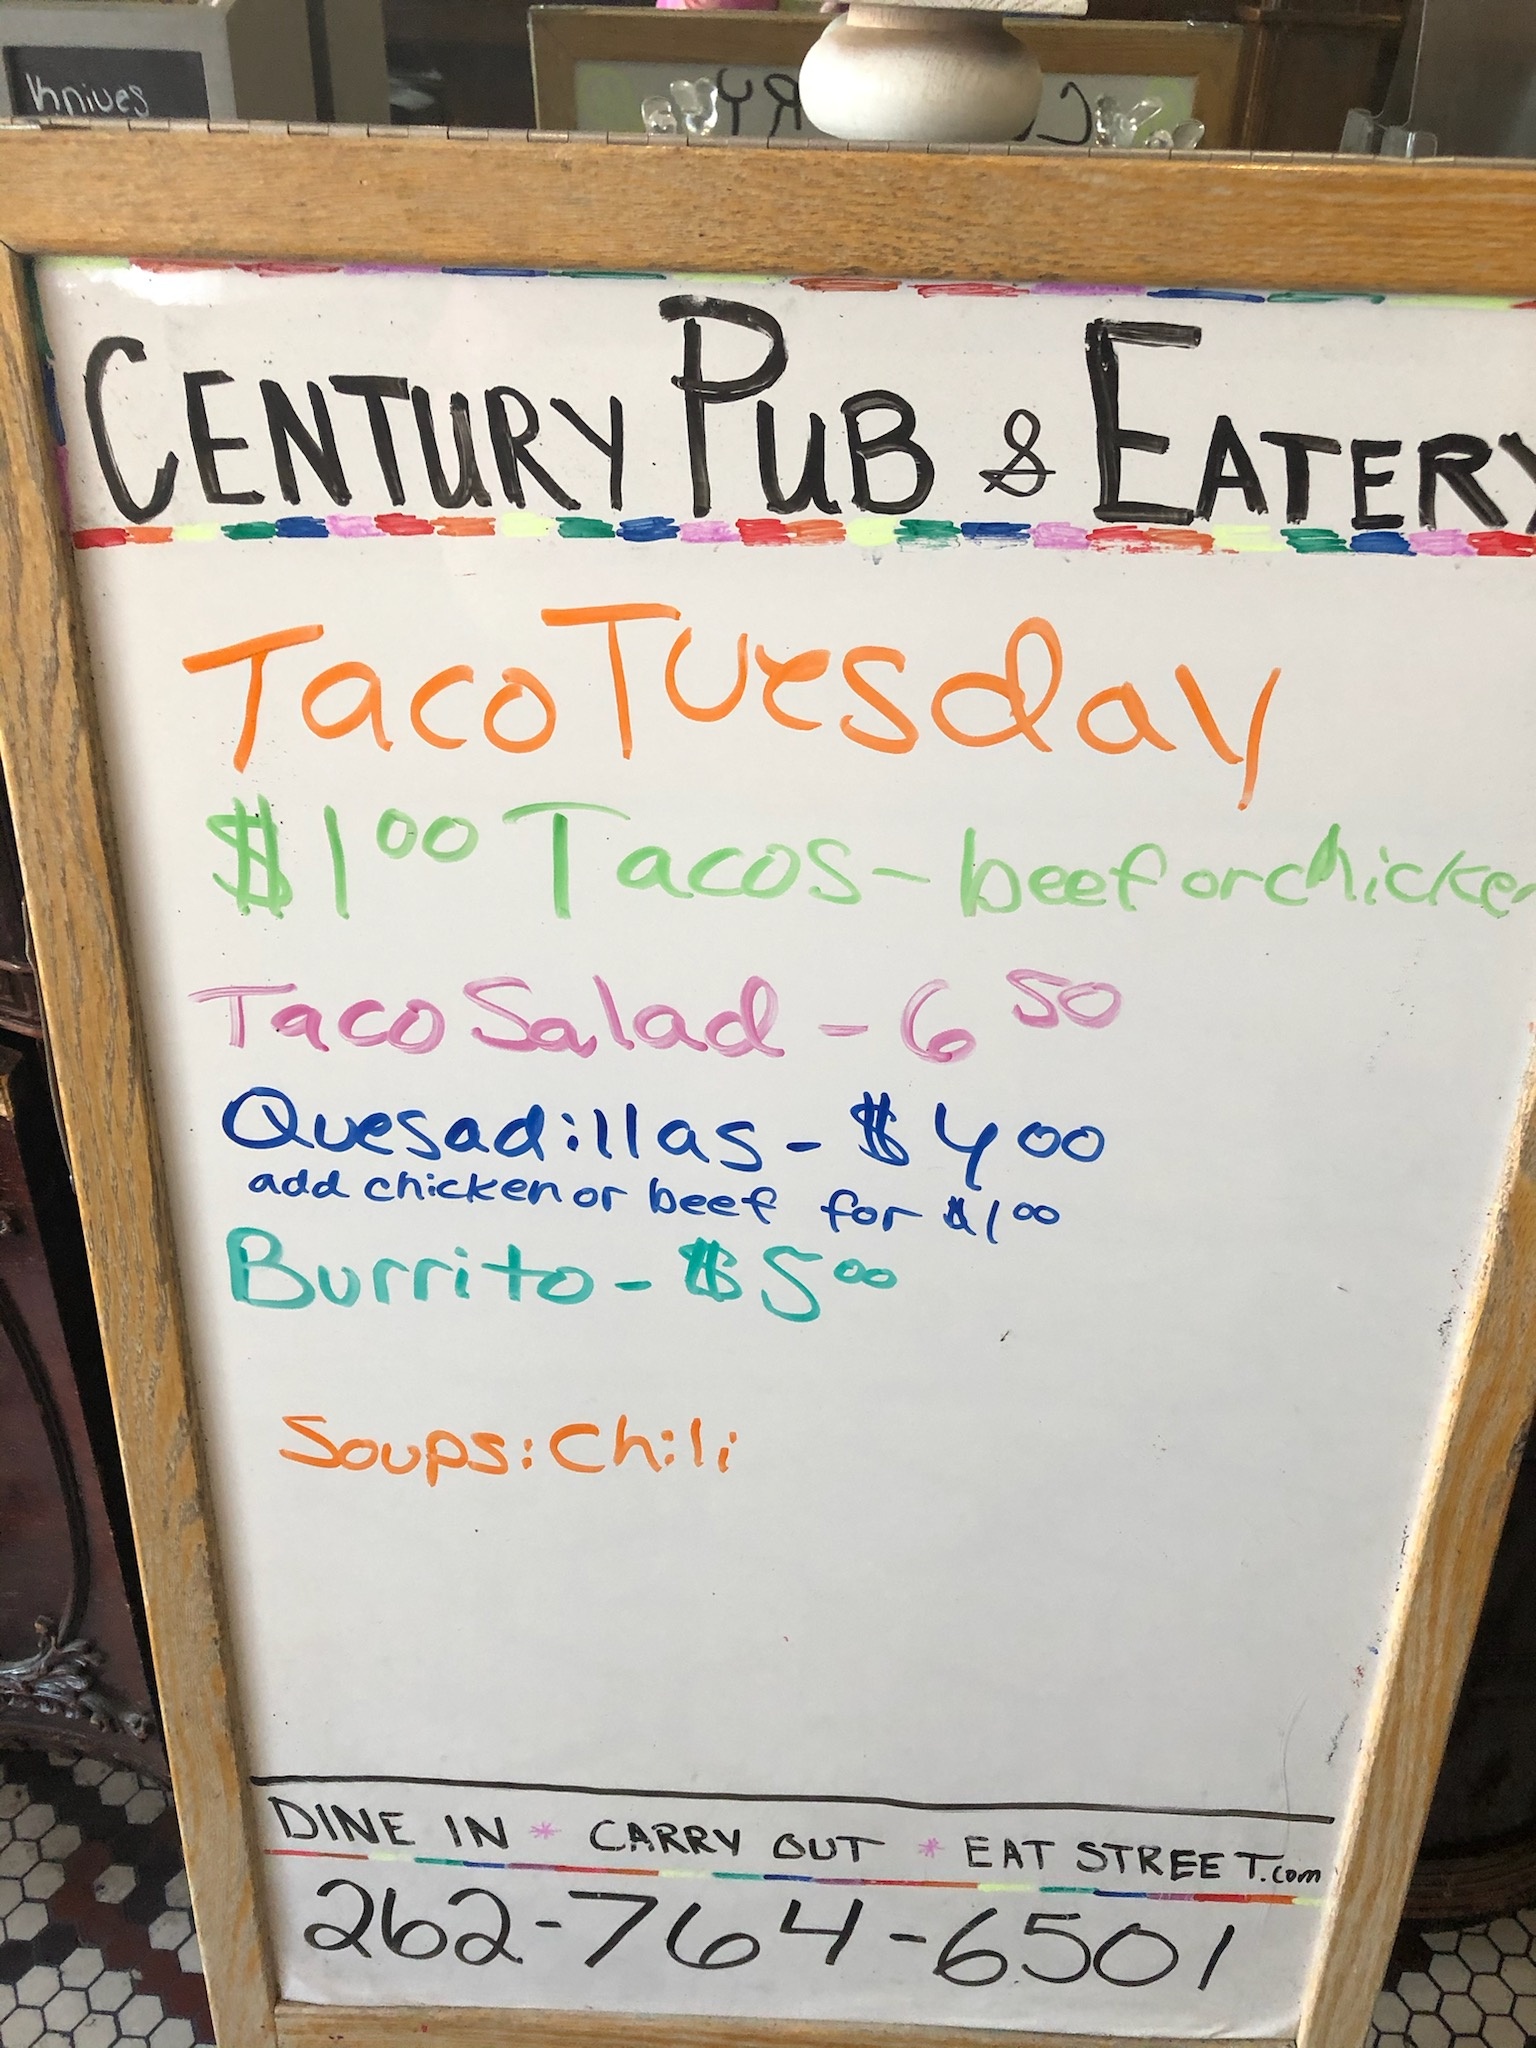 Knives
CENTURY PUB & EATERY
Taco Tuesday
$1.00 Tacos - beef or chicken
Taco Salad - 6.50
Quesadillas - $4.00
add chicken or beef for $1.00
Burrito - $5.00
Soups: Chili
DINE IN * CARRY OUT * EAT STREET.com
262-764-6501